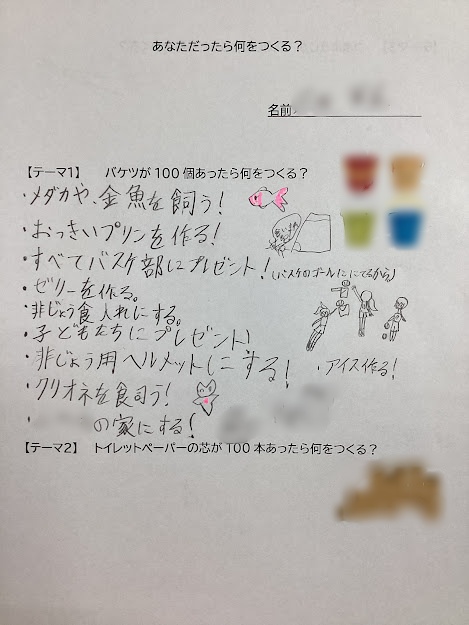 あなただったら何をつくる？
名前
【テーマ1】 バケツが100個あったら何をつくる？
・メダカや、金魚を飼う！
・おっきいプリンを作る！
・すべてバスケ部にプレゼント！(バスケのゴールににてるから)
・ゼリーを作る。
・非じょう食入れにする。
・子どもたちにプレゼント！
・非じょう用ヘルメットにする！
・アイス作る！
・クリオネを飼う！
・ の家にする！
【テーマ2】 トイレットペーパーの芯が100本あったら何をつくる？